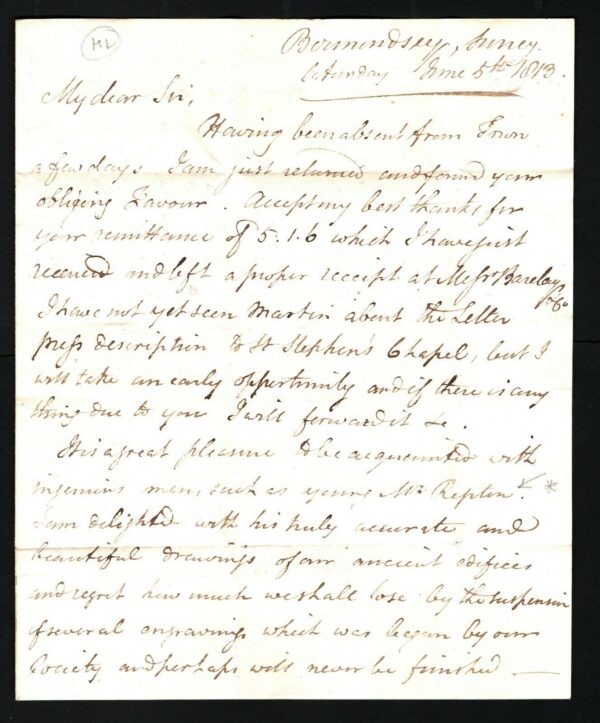 HL
Bermondsey, Surrey.
Saturday June 5th 1813.
My dear Sir,
Having been absent from Town
a few days I am just returned and found your
obliging Favour. Accept my best thanks for
your remittance of 5.1.6 which I have just
received and left a proper receipt at Messrs Barclay
& Co
I have not yet seen Martin about the Letter
press description to St Stephen's Chapel, but I
will take an early opportunity and if there is any
thing due to you I will forward it &c.
It is a great pleasure to be acquainted with
ingenius men, such as young Mr Repton. *
I am delighted with his truly accurate and
beautiful drawings of our ancient edifices
and regret how much we shall lose by the suspension
of several engravings which was began by our
Society and perhaps will never be finished —